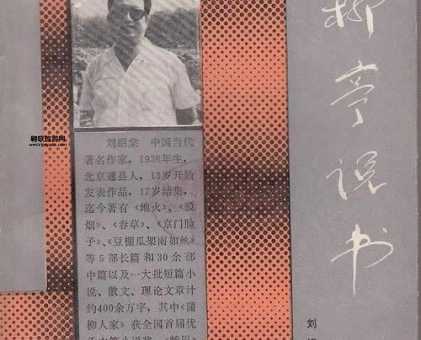 柳亭说书
刘绍棠 中国当代
著名作家，1936年生，
北京通县人，13岁开始
发表作品，17岁结集，
迄今著有《地火》、《狼
烟》、《春草》、《京门脸
子》、《豆棚瓜架雨如丝》
等5部长篇和30余部
中篇以及一大批短篇小
说、散文、理论文章计
约400余万字，其中《蒲
柳人家》获全国首届优
刘